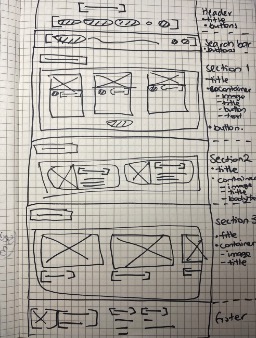 Header
-title
-buttons
Search bar
-buttons
Section 1
-title
-image
-title
-button
-text
-button
Section 2
-title
-container
-image
-title
Section 3
-title
-container
-image
-title